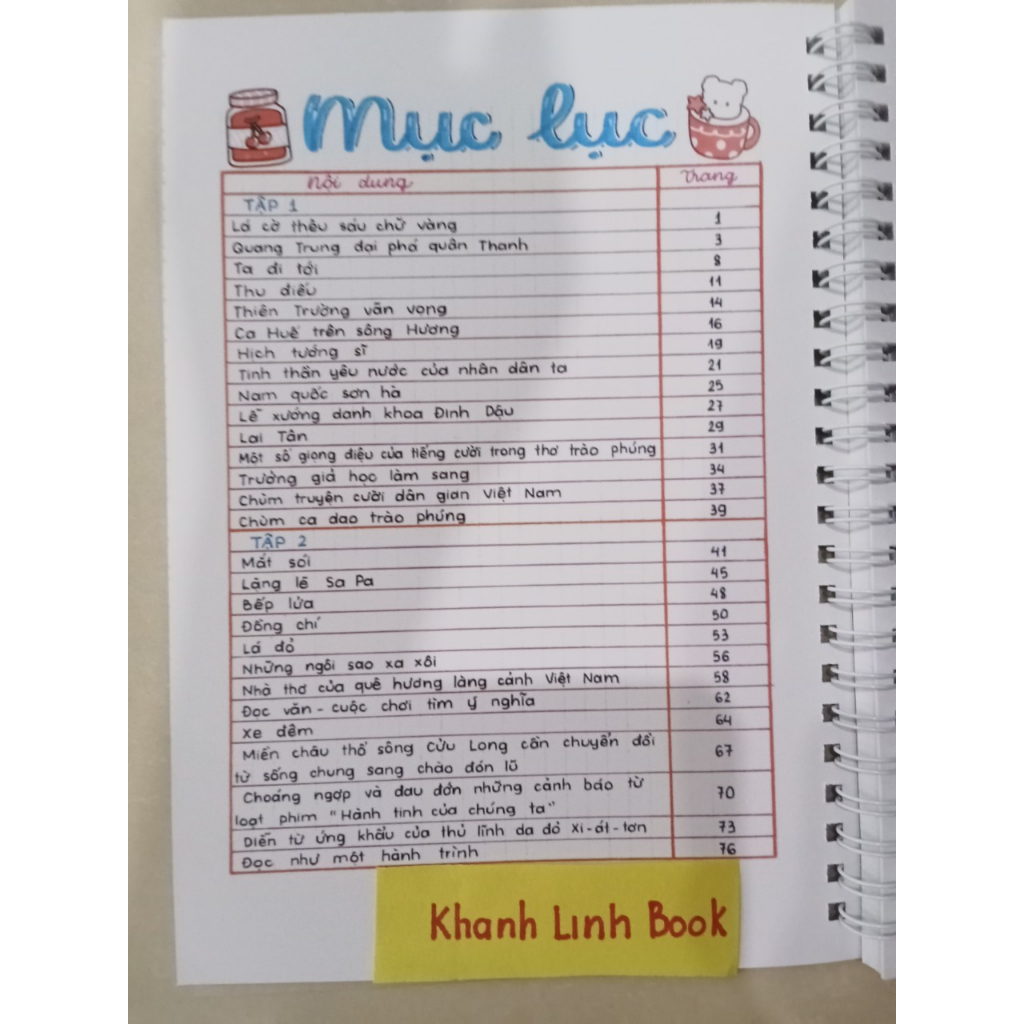 Mục lục
Nội dung Trang
TẬP 1
Lá cờ thêu sáu chữ vàng 1
Quang Trung đại phá quân Thanh 3
Ta đi tới 8
Thu điếu 11
Thiên Trường vãn vọng 14
Ca Huế trên sông Hương 16
Hịch tướng sĩ 19
Tinh thần yêu nước của nhân dân ta 21
Nam quốc sơn hà 25
Lễ xướng danh khoa Đinh Dậu 27
Lai Tân 29
Một số giọng điệu của tiếng cười trong thơ trào phúng 31
Trưởng giả học làm sang 34
Chùm truyện cười dân gian Việt Nam 37
Chùm ca dao trào phúng 39
TẬP 2
Mắt sói 41
Lặng lẽ Sa Pa 45
Bếp lửa 48
Đồng chí 50
Lá đỏ 53
Những ngôi sao xa xôi 56
Nhà thơ của quê hương làng cảnh Việt Nam 58
Đọc văn - cuộc chơi tìm ý nghĩa 62
Xe đêm 64
Miền châu thổ sông Cửu Long cần chuyển đổi
từ sống chung sang chào đón lũ 67
Choáng ngợp và đau đớn những cảnh báo từ
loạt phim "Hành tinh của chúng ta" 70
Diễn từ ứng khẩu của thủ lĩnh da đỏ Xi-át-tơn 73
Đọc như một hành trình 76
Khanh Linh Book